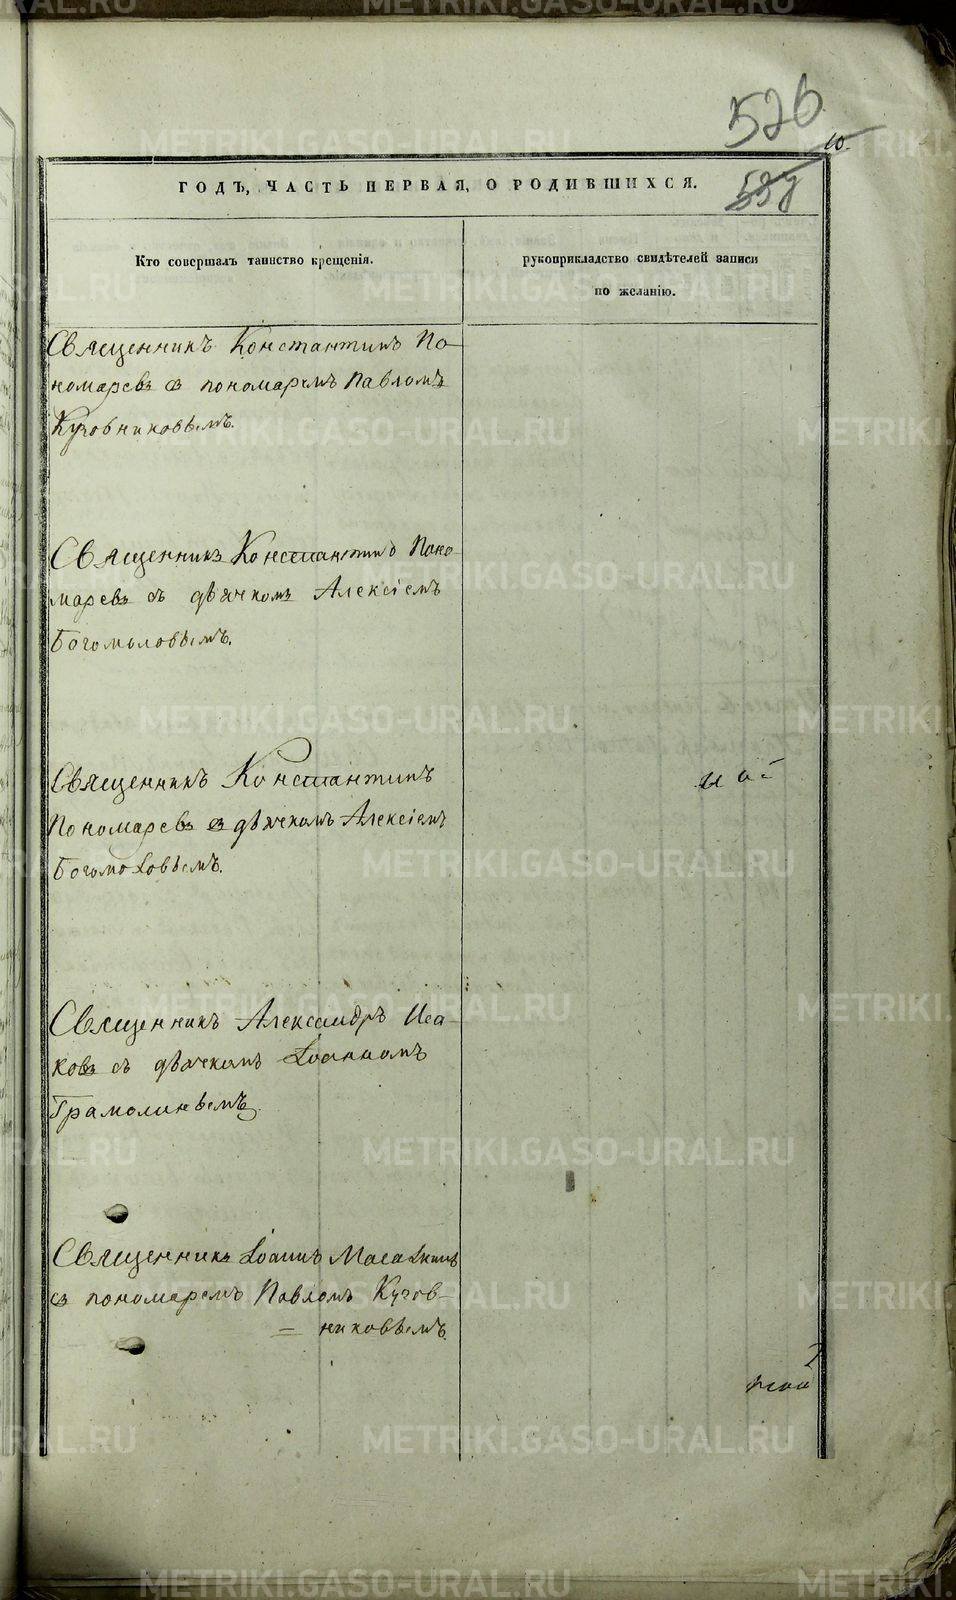 526
10
539
ГОДЪ, ЧАСТЬ ПЕРВАЯ, О РОДИВШИХСЯ.
Кто совершалъ таинство крещенія.
рукоприкладство свидѣтелей записи
по желанію.
Священникъ Константинъ По-
номаревъ съ пономаремъ Павломъ
Кузовниковымъ.
Священникъ Константинъ Поно-
маревъ съ дьячкомъ Алексіемъ
Богомоловымъ.
Священникъ Константинъ
Пономаревъ съ дьячкомъ Алексіемъ
Богомоловымъ.
Священникъ Александръ Иса-
ковъ съ дьячкомъ Іоанномъ
Грамолинымъ.
Священникъ Іоаннъ
съ пономаремъ Павломъ Кузов-
= никовымъ.
METRIKI.GASO-URAL.RU